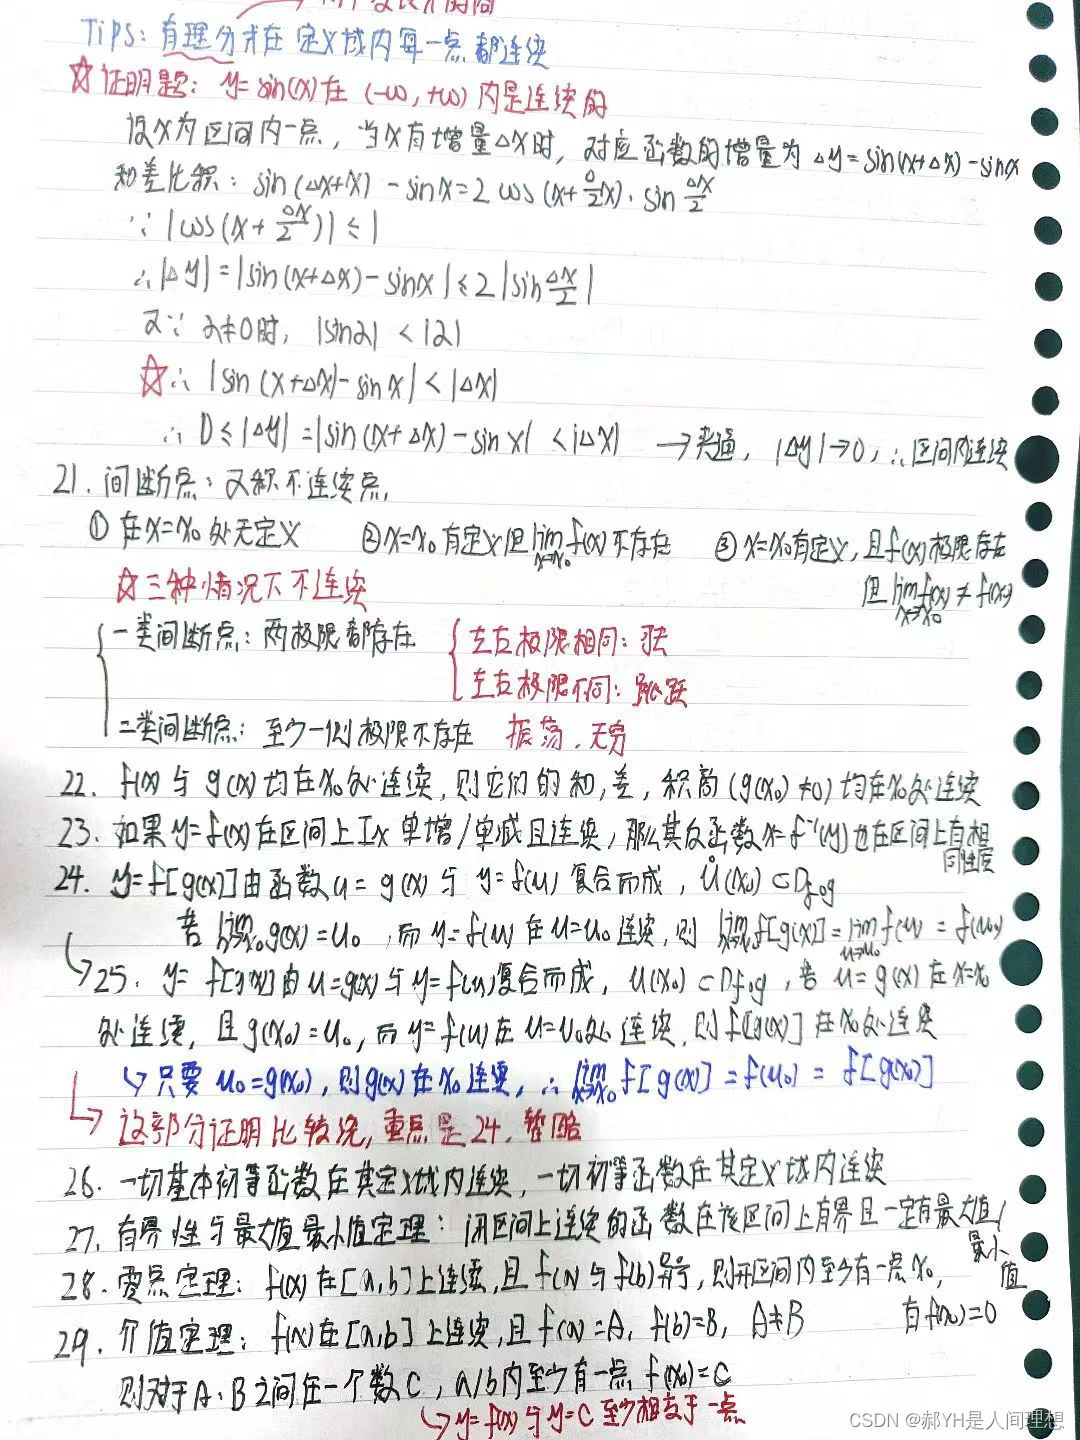 Tips: 有理分式在定义域内每一点都连续
☆证明题: y=sin(x)在(-∞,+∞)内是连续的
设x为区间内一点, 当x有增量△x时, 对应函数的增量为△y=sin(x+△x)-sinx
和差化积: sin(△x+x)-sinx=2cos(x+△/2x)·sin△x/2
∵|cos(x+△x/2)|≤1
∴|△y|=|sin(x+△x)-sinx|≤2|sin△x/2|
又∵ α≠0时, |sinα|<|α|
☆∴|sin(x+△x)-sinx|<|△x|
∴0≤|△y|=|sin(x+△x)-sinx|<|△x| →夹逼, |△y|→0, ∴区间内连续
21. 间断点: 又称不连续点,
①在x=x₀处无定义 ②x=x₀有定义但lim x→x₀ f(x)不存在 ③x=x₀有定义, 且f(x)极限存在
但lim x→x₀ f(x)≠f(x₀)
☆三种情况下不连续
一类间断点: 两极限都存在 左右极限相同: 可去
左右极限不同: 跳跃
二类间断点: 至少一侧极限不存在 振荡, 无穷
22. f(x)与g(x)均在x₀处连续, 则它们的和, 差, 积商(g(x₀)≠0)均在x₀处连续
23. 如果y=f(x)在区间上Ix单增/单减且连续, 那么其反函数x=f⁻¹(y)也在区间上有相
同性质
24. y=f[g(x)]由函数u=g(x)与y=f(u)复合而成, Ů(x₀)⊂Df∘g
若lim x→x₀ g(x)=u₀, 而y=f(u)在u=u₀连续, 则lim x→x₀ f[g(x)]=lim u→u₀ f(u)=f(u₀)
↳25. y=f[g(x)]由u=g(x)与y=f(u)复合而成, U(x₀)⊂Df∘g, 若u=g(x)在x=x₀
处连续, 且g(x₀)=u₀, 而y=f(u)在u=u₀处连续, 则f[g(x)]在x₀处连续
↳只要u₀=g(x₀), 则g(x)在x₀连续, ∴lim x→x₀ f[g(x)]=f(u₀)=f[g(x₀)]
↳这部分证明比较绕, 重点是24, 暂略
26. 一切基本初等函数在其定义域内连续, 一切初等函数在其定义域内连续
27. 有界性与最大值最小值定理: 闭区间上连续的函数在该区间上有界且一定有最大值/
最小值
28. 零点定理: f(x)在[a,b]上连续, 且f(a)与f(b)异号, 则开区间内至少有一点x₀,
有f(x₀)=0
29. 介值定理: f(x)在[a,b]上连续, 且f(a)=A, f(b)=B, A≠B
则对于A、B之间任一个数C, a/b内至少有一点f(x₀)=C
↳y=f(x)与y=C至少相交于一点
CSDN @郝YH是人间理想